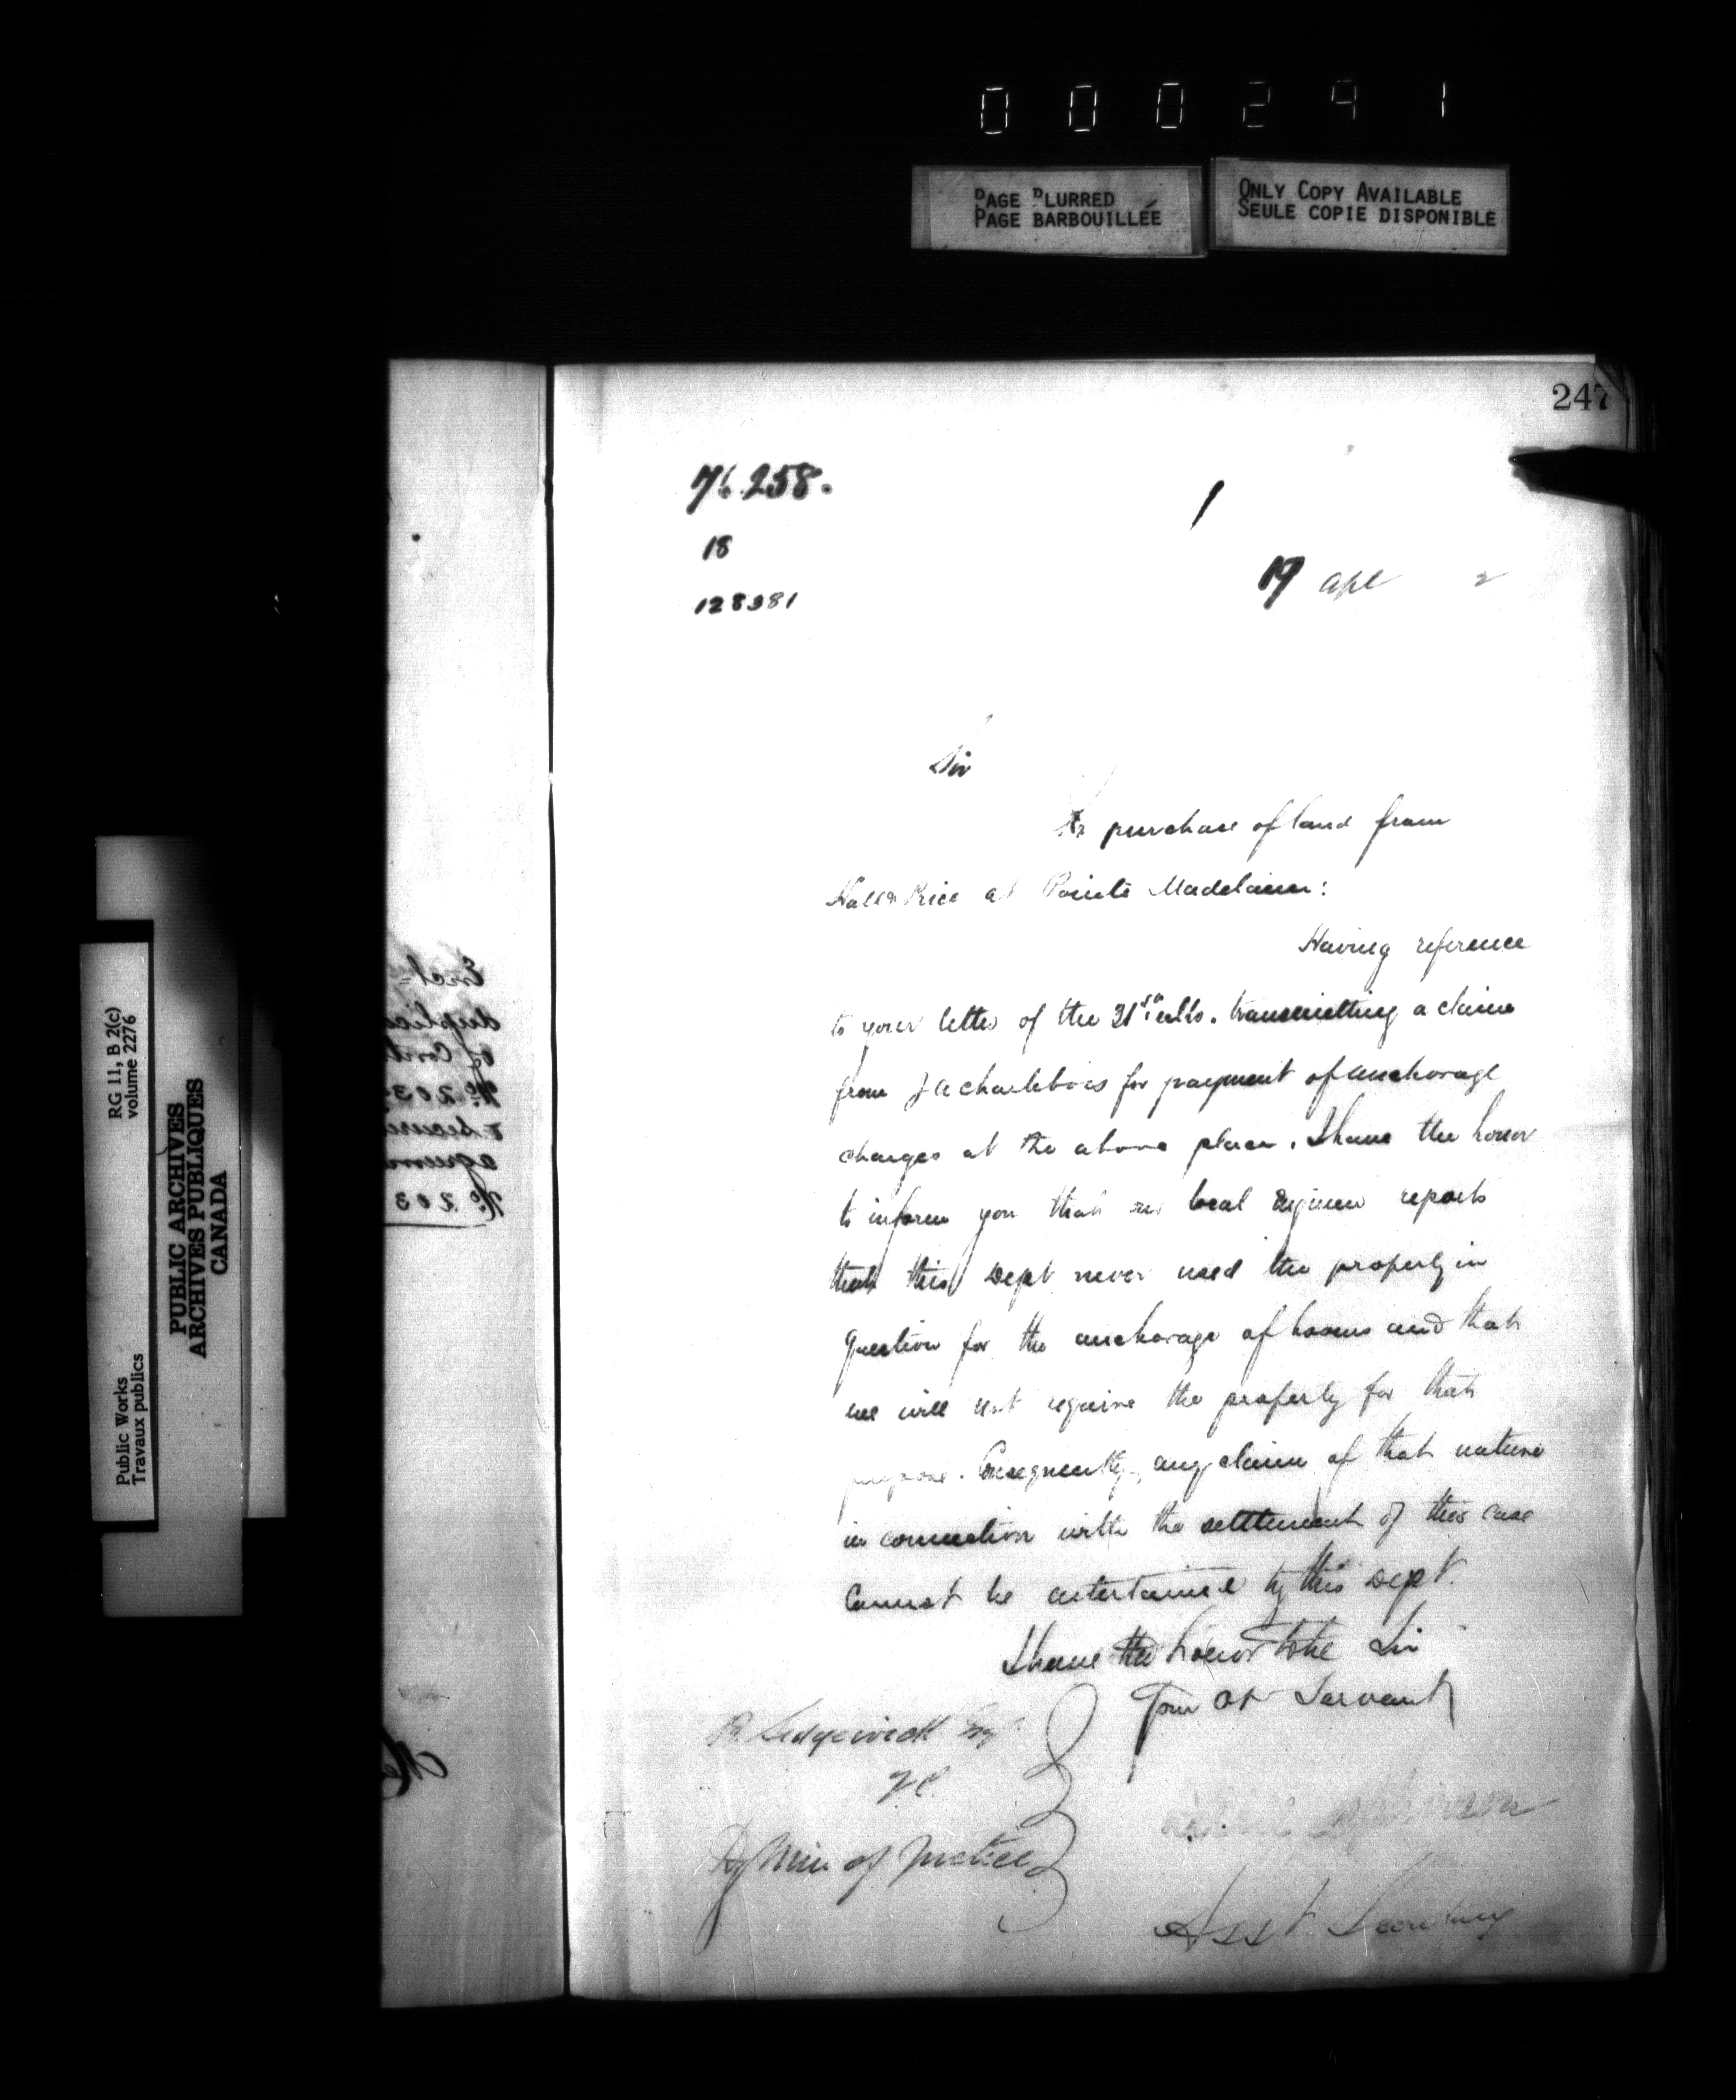 000291
PAGE BLURRED
PAGE BARBOUILLÉE
ONLY COPY AVAILABLE
SEULE COPIE DISPONIBLE
247
76.258.
1
18
19 Apl 2
128381
Sir
Re purchase of land from
Hall & Price at Pointe Madelaine:
Having reference
to your letter of the 31st ulto. transmitting a claim
from J A Charlebois for payment of anchorage
charges at the above place. I have the honor
to inform you that our local Engineer reports
that this Dept never used the property in
question for the anchorage of booms and that
we will not require the property for that
purpose. Consequently, any claim of that nature
in connection with the settlement of this case
Cannot be entertained by this Dept.
I have the honor to be Sir
Your Ob Servant
R. Sedgewick Esq
Dy Min of Justice
Asst Secretary
RG 11, B 2(c)
volume 2276
Public Works
Travaux publics
PUBLIC ARCHIVES
ARCHIVES PUBLIQUES
CANADA